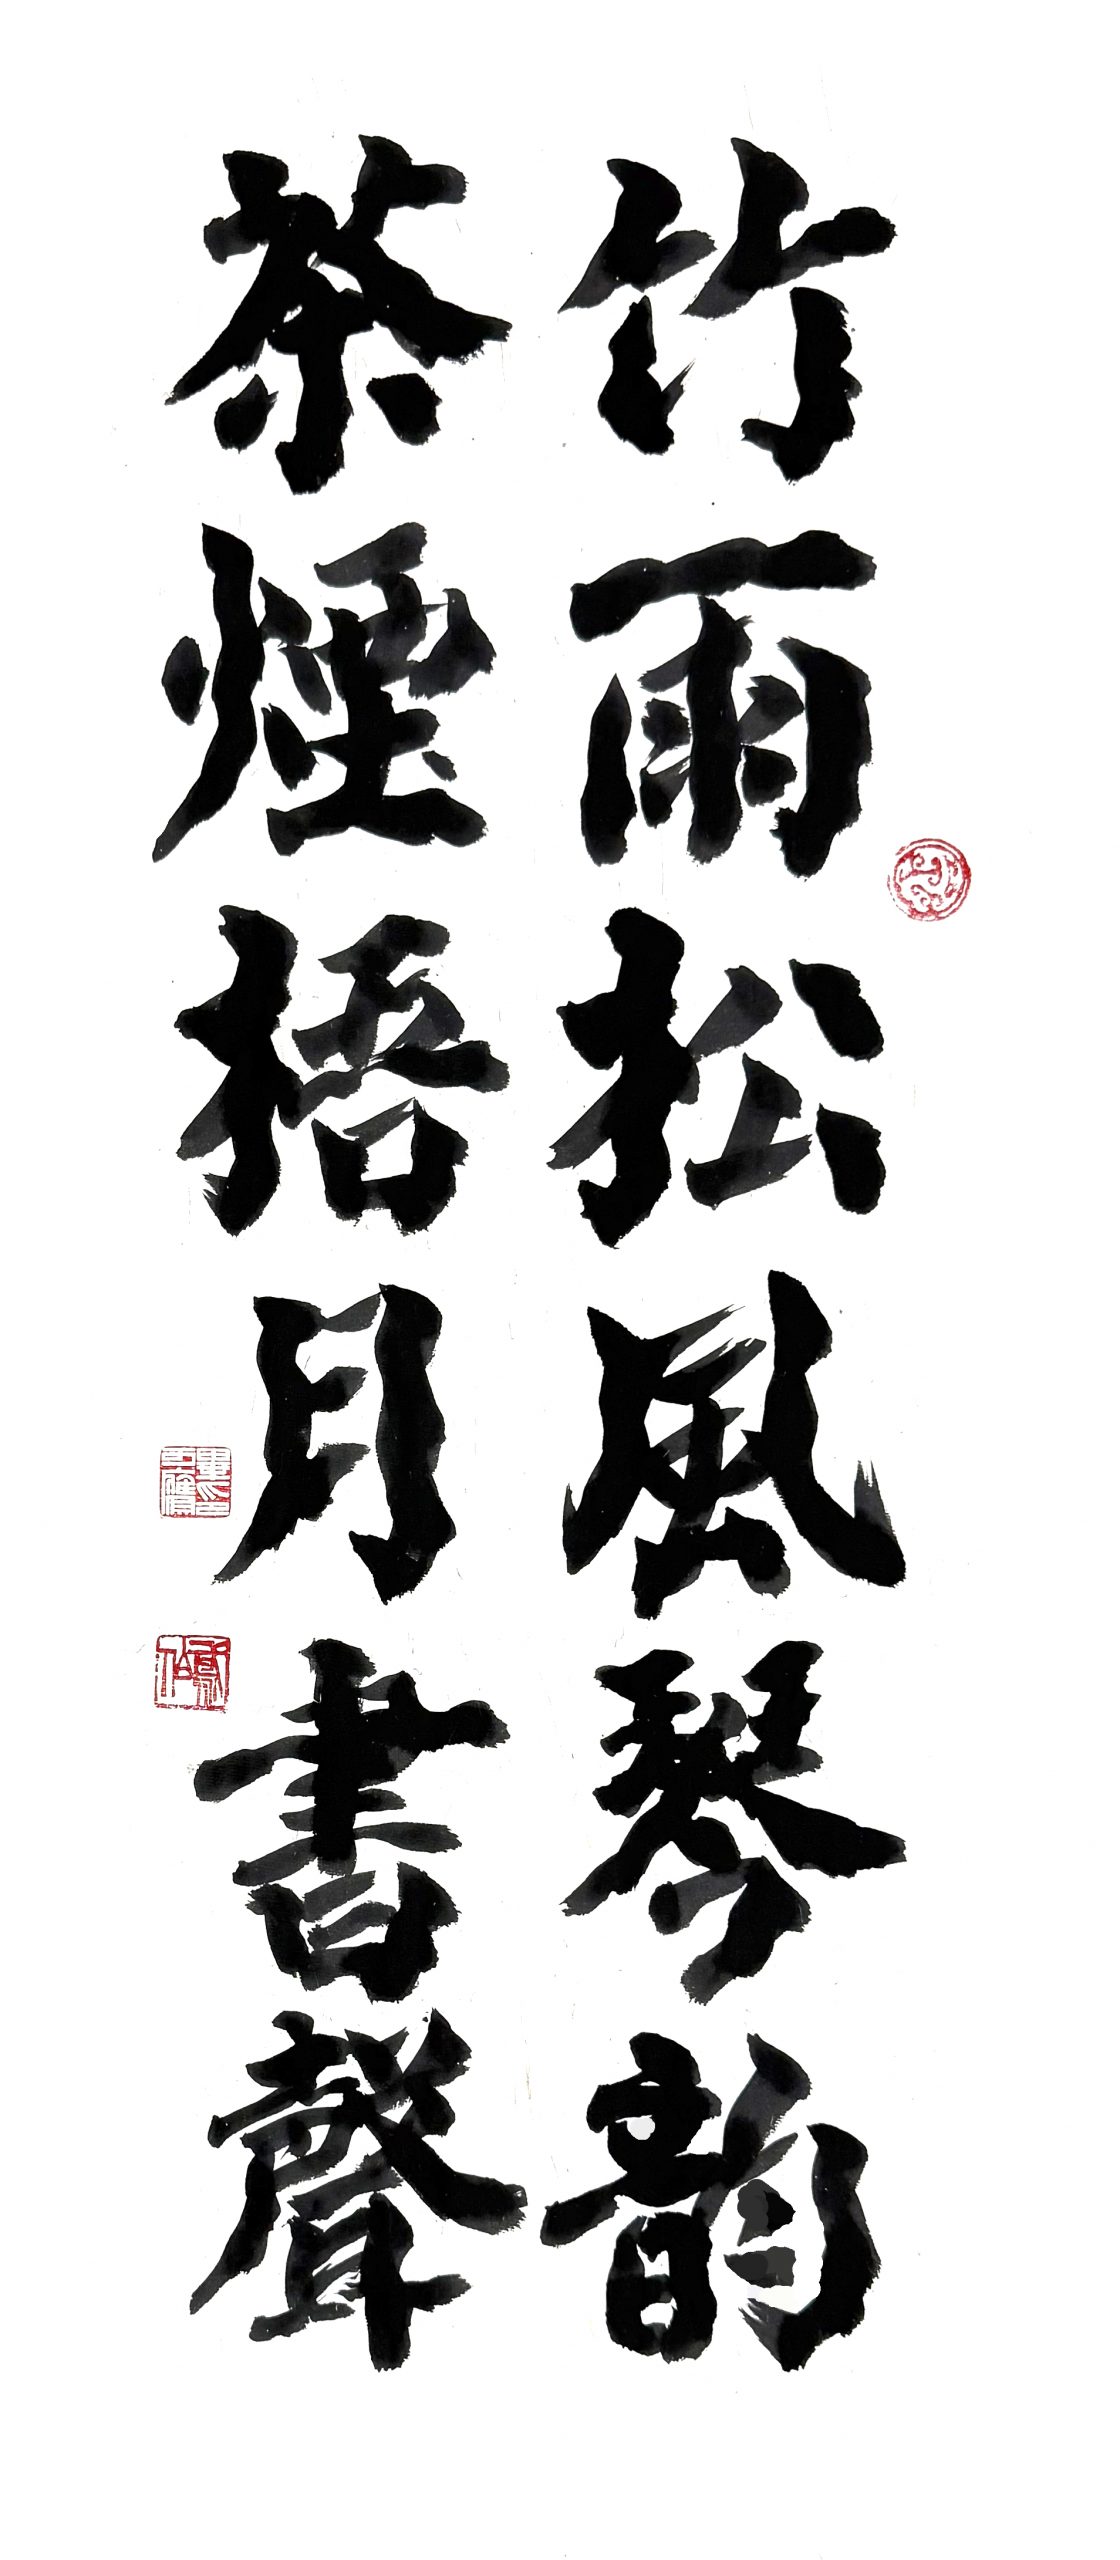 竹雨松風琴韵
茶煙梧月書聲